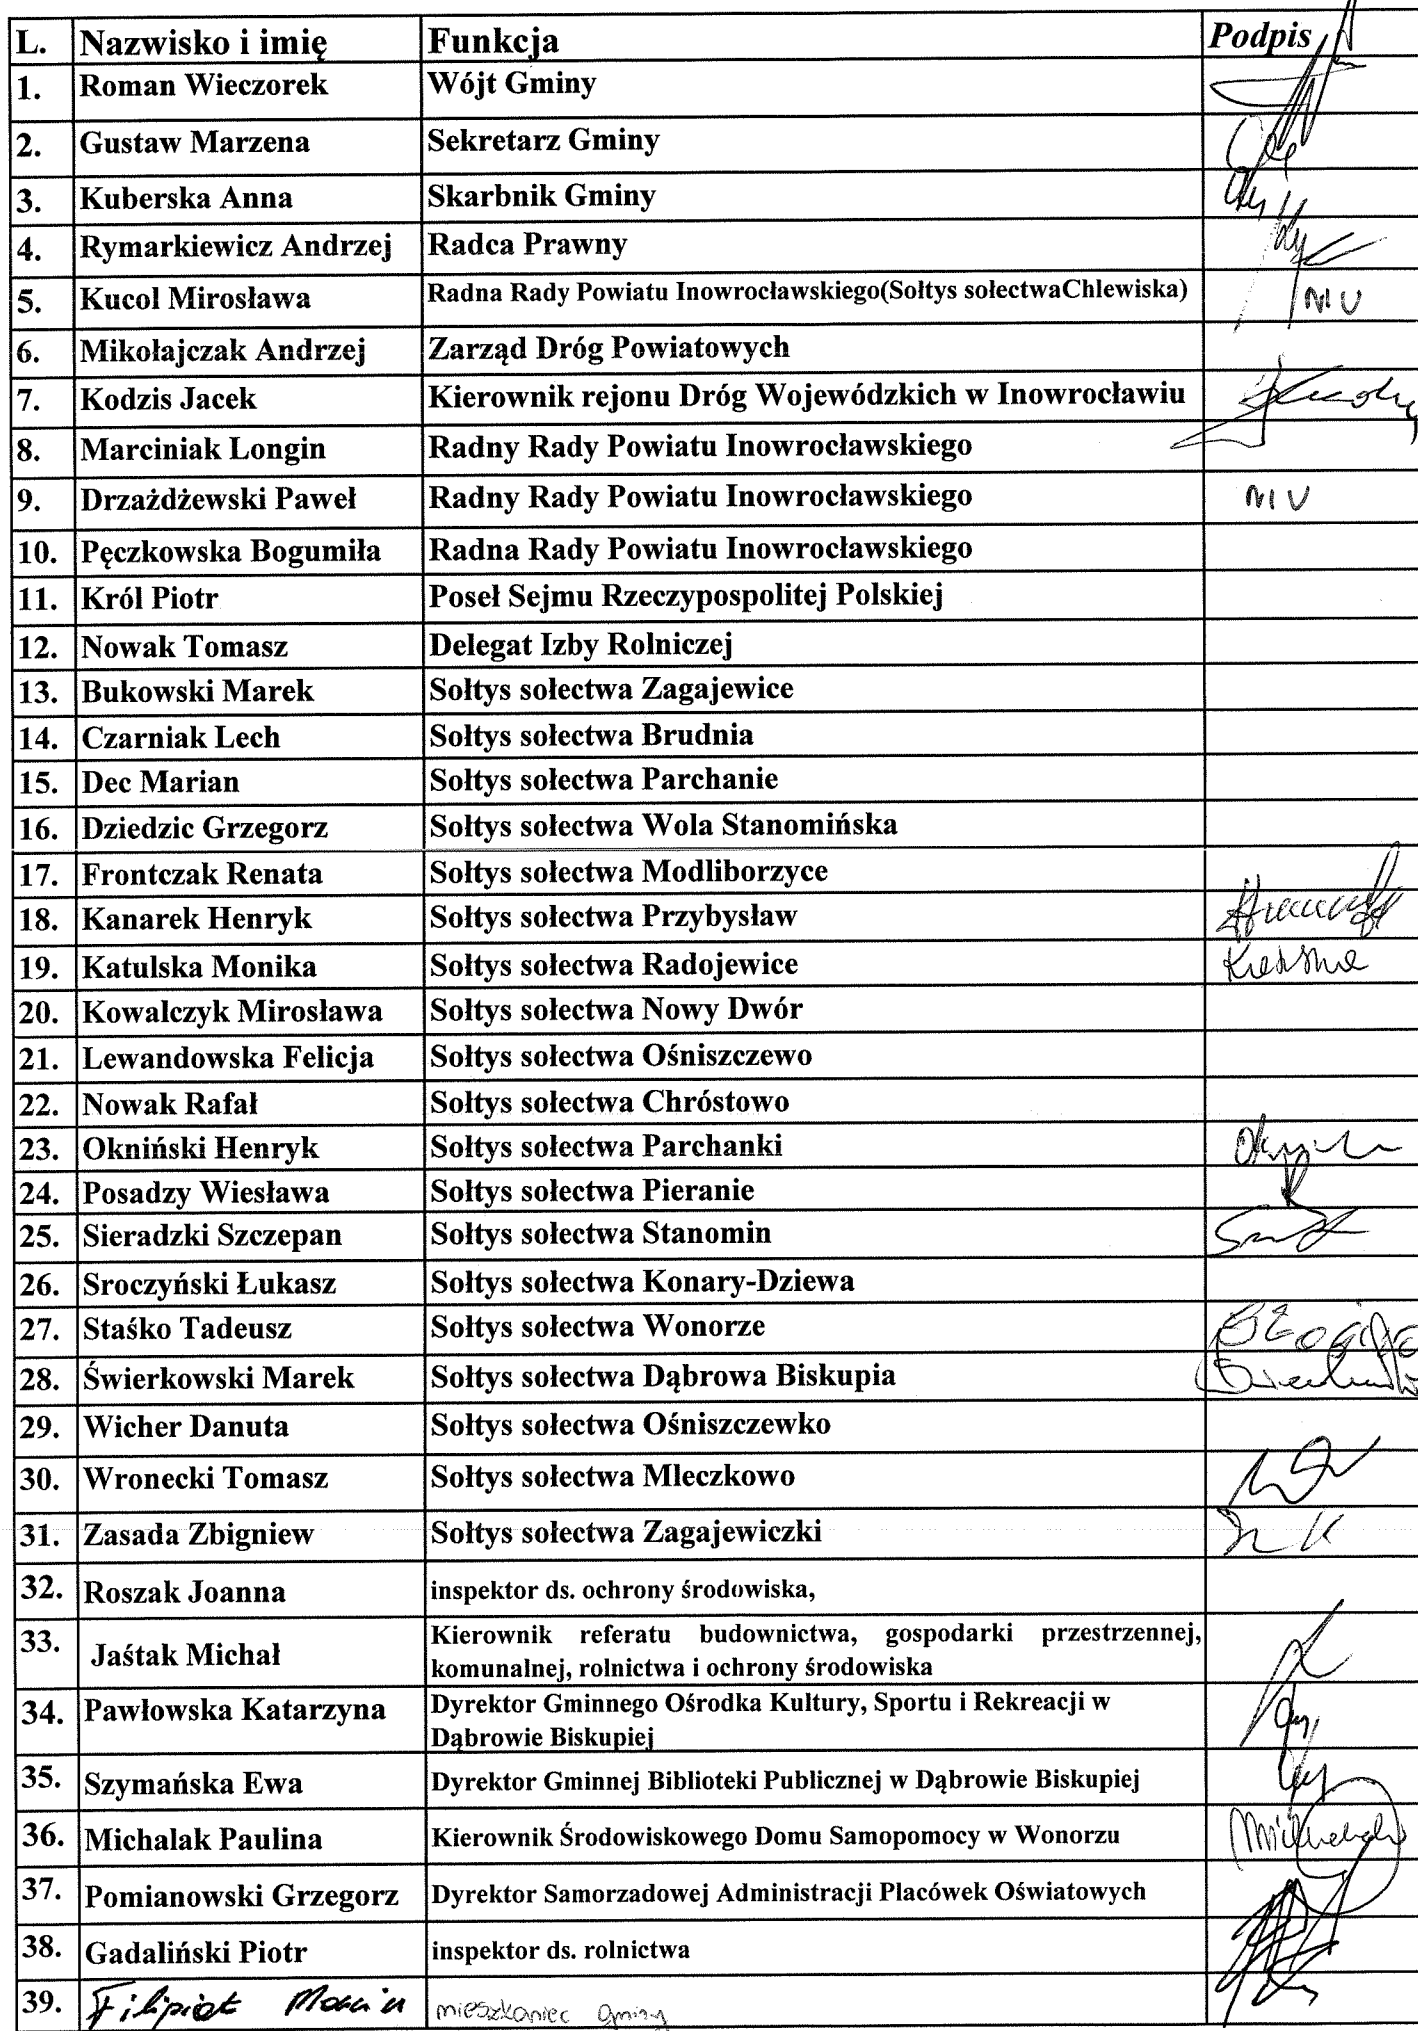 L. Nazwisko i imię Funkcja Podpis
1. Roman Wieczorek Wójt Gminy
2. Gustaw Marzena Sekretarz Gminy
3. Kuberska Anna Skarbnik Gminy
4. Rymarkiewicz Andrzej Radca Prawny
5. Kucol Mirosława Radna Rady Powiatu Inowrocławskiego(Sołtys sołectwaChlewiska)
6. Mikołajczak Andrzej Zarząd Dróg Powiatowych
7. Kodzis Jacek Kierownik rejonu Dróg Wojewódzkich w Inowrocławiu
8. Marciniak Longin Radny Rady Powiatu Inowrocławskiego
9. Drzażdżewski Paweł Radny Rady Powiatu Inowrocławskiego
10. Pęczkowska Bogumiła Radna Rady Powiatu Inowrocławskiego
11. Król Piotr Poseł Sejmu Rzeczypospolitej Polskiej
12. Nowak Tomasz Delegat Izby Rolniczej
13. Bukowski Marek Sołtys sołectwa Zagajewice
14. Czarniak Lech Sołtys sołectwa Brudnia
15. Dec Marian Sołtys sołectwa Parchanie
16. Dziedzic Grzegorz Sołtys sołectwa Wola Stanomińska
17. Frontczak Renata Sołtys sołectwa Modliborzyce
18. Kanarek Henryk Sołtys sołectwa Przybysław
19. Katulska Monika Sołtys sołectwa Radojewice
20. Kowalczyk Mirosława Sołtys sołectwa Nowy Dwór
21. Lewandowska Felicja Sołtys sołectwa Ośniszczewo
22. Nowak Rafał Sołtys sołectwa Chróstowo
23. Okniński Henryk Sołtys sołectwa Parchanki
24. Posadzy Wiesława Sołtys sołectwa Pieranie
25. Sieradzki Szczepan Sołtys sołectwa Stanomin
26. Sroczyński Łukasz Sołtys sołectwa Konary-Dziewa
27. Staśko Tadeusz Sołtys sołectwa Wonorze
28. Świerkowski Marek Sołtys sołectwa Dąbrowa Biskupia
29. Wicher Danuta Sołtys sołectwa Ośniszczewko
30. Wronecki Tomasz Sołtys sołectwa Mleczkowo
31. Zasada Zbigniew Sołtys sołectwa Zagajewiczki
32. Roszak Joanna inspektor ds. ochrony środowiska,
33. Jaśtak Michał Kierownik referatu budownictwa, gospodarki przestrzennej,
komunalnej, rolnictwa i ochrony środowiska
34. Pawłowska Katarzyna Dyrektor Gminnego Ośrodka Kultury, Sportu i Rekreacji w
Dąbrowie Biskupiej
35. Szymańska Ewa Dyrektor Gminnej Biblioteki Publicznej w Dąbrowie Biskupiej
36. Michalak Paulina Kierownik Środowiskowego Domu Samopomocy w Wonorzu
37. Pomianowski Grzegorz Dyrektor Samorzadowej Administracji Placówek Oświatowych
38. Gadaliński Piotr inspektor ds. rolnictwa
39. Filipiak Marcin mieszkaniec gminy